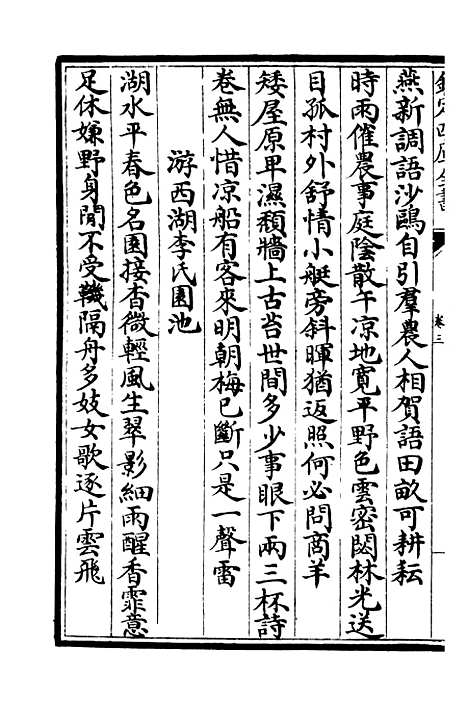 欽定四庫全書
卷三
燕新調語沙鷗自引羣農人相賀語田畝可耕耘
時雨催農事庭陰散午凉地寛平野色雲密閟林光送
目孤村外舒情小艇旁斜暉猶返照何必問商羊
矮屋原卑濕頽牆上古苔世間多少事眼下兩三杯詩
卷無人惜凉船有客來明朝梅已斷只是一聲雷
游西湖李氏園池
湖水平春色名園接杳微輕風生翠影細雨醒香霏意
足休嫌野身閒不受鞿隔舟多妓女歌逐片雲飛